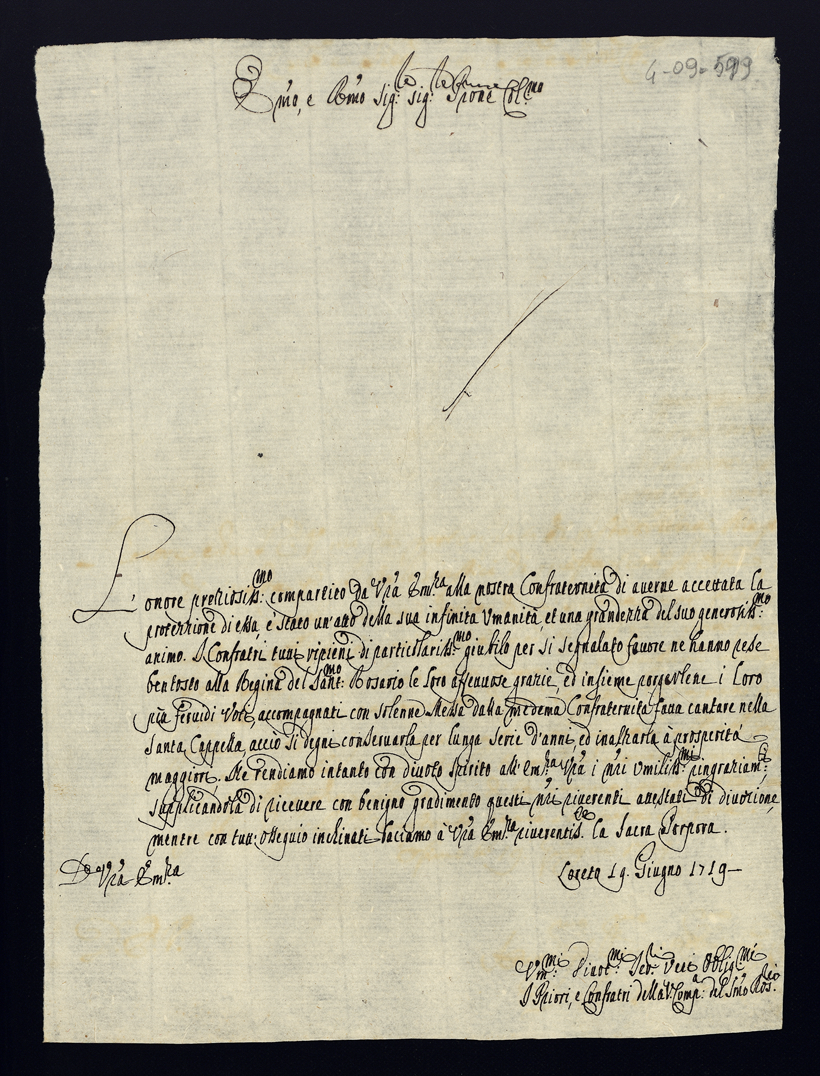 4-09-599
Emo, e Rmo Sig:re Sig:re Prone Col:mo
L'onore preziosiss:mo compartito da Vrã Em:za alla nostra Confraternità di averne accettata la
protezzione di essa, è stato un'atto della sua infinita Umanità, et una grandezza del suo generosiss:mo
animo. I Confratri tutti ripieni di particolariss:mo giubilo per si segnalato favore ne hanno rese
bentosto alla Regina del Sant:mo Rosario le loro affettuose grazie, ed insieme porgerlene i loro
più fervidi Voti, accompagnati con solenne Messa dalla medema Confraternita fatta cantare nella
Santa Cappella, acciò si degni conservarla per lunga serie d'anni, ed inalzarla à prosperità
maggiori. Ne rendiamo intanto con divoto spirito all'Em:za Vrã i nri umiliss:mi ringraziam:ti
supplicandola di ricevere con benigno gradimento questi nri riverenti attestati di divozione,
mentre con tutt: ossequio inchinati baciamo à Vrã Em:za riverentis:te la Sacra Porpora.
Di Vrã Em:za
Loreto 19. Giugno 1719
Um:mi Divot:mi Ser:ri Veri Oblig:mi
I Priori, e Confratri della V. Comp:a del Smo Ros:rio